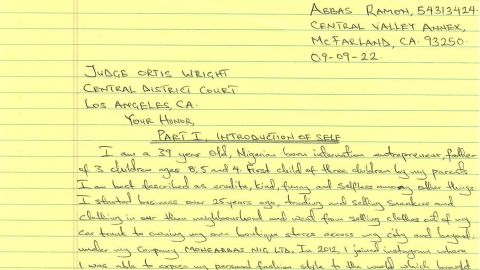 ABBAS RAMON, 54313424.
CENTRAL VALLEY ANNEX,
McFARLAND, CA. 93250.
09-09-22.
JUDGE ORTIS WRIGHT
CENTRAL DISTRICT COURT
LOS ANGELES, CA.
YOUR HONOR,
PART I, INTRODUCTION OF SELF
I am a 39 year old, Nigerian born information entrepreneur, father
of 3 children ages 8, 5 and 4. First child of three children by my parents
I am best described as erudite, kind, funny and selfless among other things.
I started business over 25 years ago, trading and selling sneakers and
clothing in our then neighbourhood and went from selling clothes out of my
car trunk to owning my own boutique stores across my city and beyond
under my Company MONEABBAS NIG LTD. In 2012, I joined instagram where
I was able to my personal fashion style to the world which